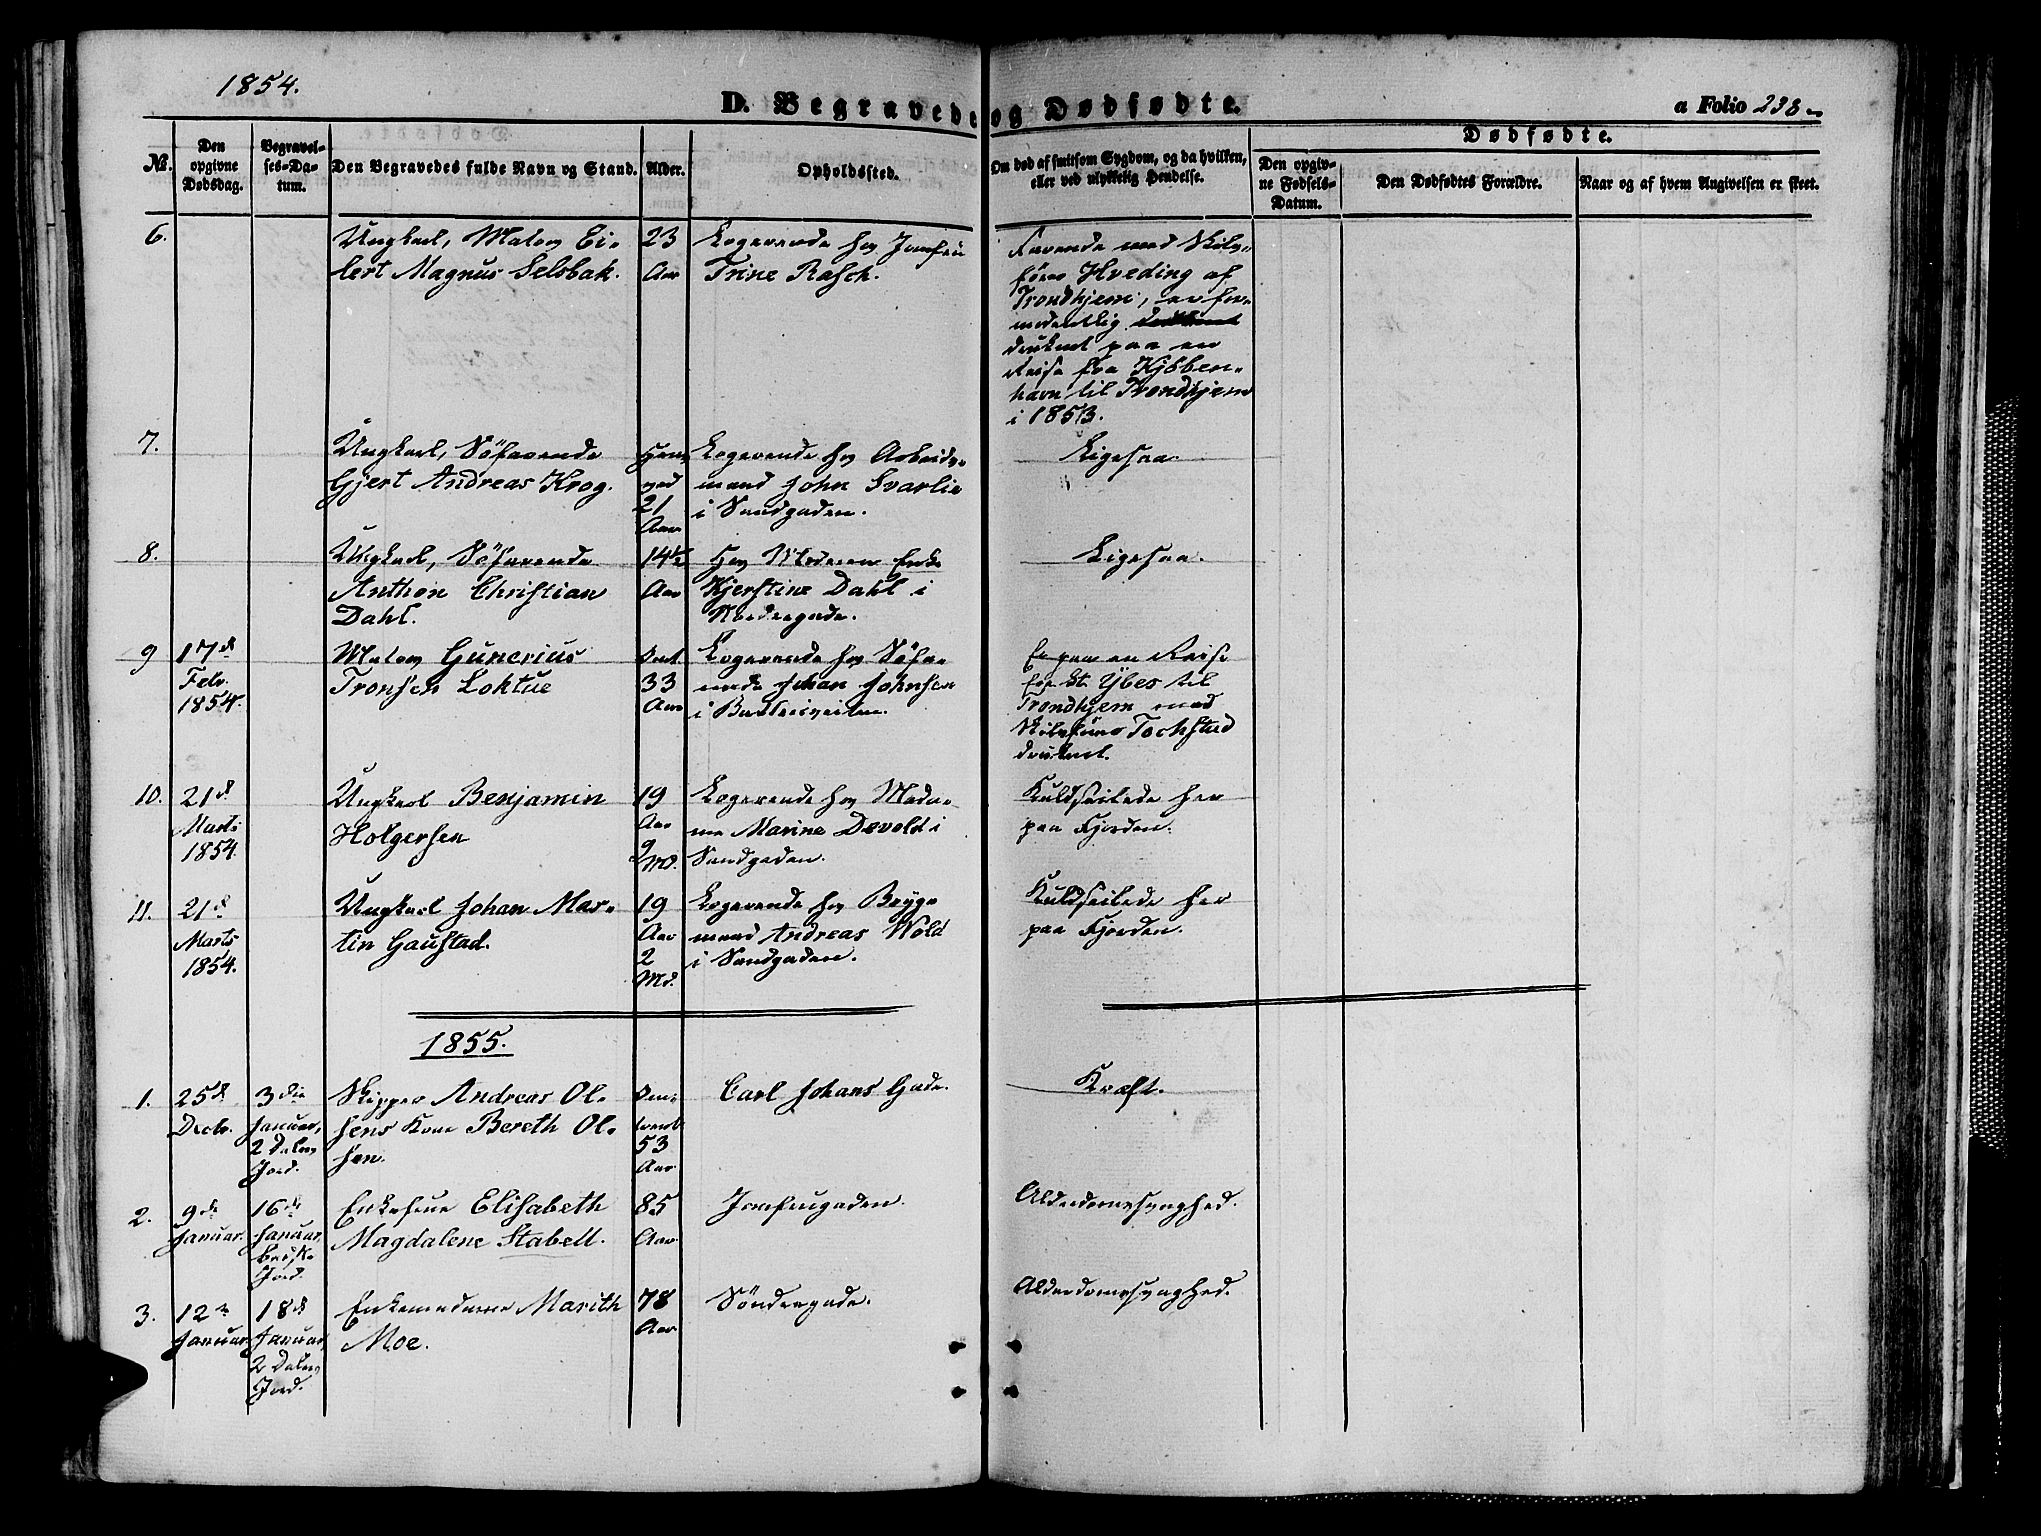 1854.
D. Begravede og Dødfødte.
a Folio 238
Dødfødte.
№.
Den opgivne Dødsdag.
Begravelses-Datum.
Den Begravedes fulde Navn og Stand.
Alder.
Opholdssted.
Om død af smitsom Sygdom, og da hvilken, eller ved ulykkelig Hendelse.
Den opgivne Fødsels-Datum.
Den Dødfødtes Forældre.
Naar og af hvem Angivelsen er skeet.
6.
Ungkarl, Matros Ei-
lert Magnus Selsbak.
23
Aar
Logerende hos Jomfru
Trine Rasch.
Farende med Skibs-
fører Hveding af
Trondhjem, er for-
modentlig
druknet paa en
Reise fra Kjöben-
havn til Trondhjem
i 1853.
7.
Ungkarl, Söfarende
Gjert Andreas Krog.
21
Aar
Logerende hos Arbeids-
mand John Svarlie
i Sandgaden.
Ligesaa.
8.
Ungkarl, Söfarende
Anthon Christian
Dahl.
14½
Aar
Hos Moderen Enke
Kjerstine Dahl i
Nordregade.
Ligesaa.
9
17d
Febr.
1854.
Matros Gunerius
Tronsen Loktue
Omt.
33
Aar
Logerende hos Söfa-
rende Johan Johnsen
i
Er paa en Reise
fra St. Ybes til
Trondhjem med
Skibsförer Tochstad
druknet.
10.
21d
Marts
1854.
Ungkarl Benjamin
Holgersen
19
Aar
9
Md.
Logerende hos Mada-
me Marine Devold i
Sandgaden.
Kuldseilede her
paa Fjorden.
11.
21d
Marts
1854.
Ungkarl Johan Mar-
tin Gaustad.
19
Aar
2
Md.
Logerende hos Bryg-
mand Andreas Wold
i Sandgaden.
Kuldseilede her
paa Fjorden.
1855.
1.
25d
Decbr.
3die
Januar,
2 Dalers
Jord.
Skipper Andreas Ol-
sens Kone Bereth Ol-
sen.
Om-
trent
53
Aar
Carl Johans Gade.
Kræft.
2.
9de
Januar.
16d
Januar.
Jord.
Enkefrue Elisabeth
Magdalene Stabell.
85
Aar.
Jomfrugaden.
Alderdomssvaghed.
3.
12te
Januar
18d
Januar,
2 Dalers
Jord.
Enkemadame Marith
Moe.
78
Aar
Söndregade.
Alderdomssvaghed.